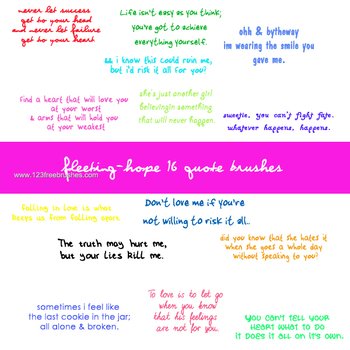 never let success
get to your head
and never let failure
get to your heart
Life isn't easy as you think;
you've got to achieve
everything yourself.
ohh & bytheway
im wearing the smile you
gave me.
if i know this could ruin me,
but i'd risk it all for you?
Find a heart that will love you
at your worst
& arms that will hold you
at your weakest
she's just another girl
BelievingIn something
that will never happen.
sweetie, you can't fight fate.
whatever happens, happens.
fleeting-hope 16 quote brushes
www.123freebrushes.com
Falling in love is what
keeps us from falling apart.
Don't love me if you're
not willing to risk it all..
The truth may hurt me,
but your lies kill me.
did you know that she hates it
when she goes a whole day
without speaking to you?
sometimes i feel like
the last cookie in the jar;
all alone & broken.
To love is to let go
when you know
that his feelings
are not for you.
You can't tell your
heart what to do
it does it all on it's own.